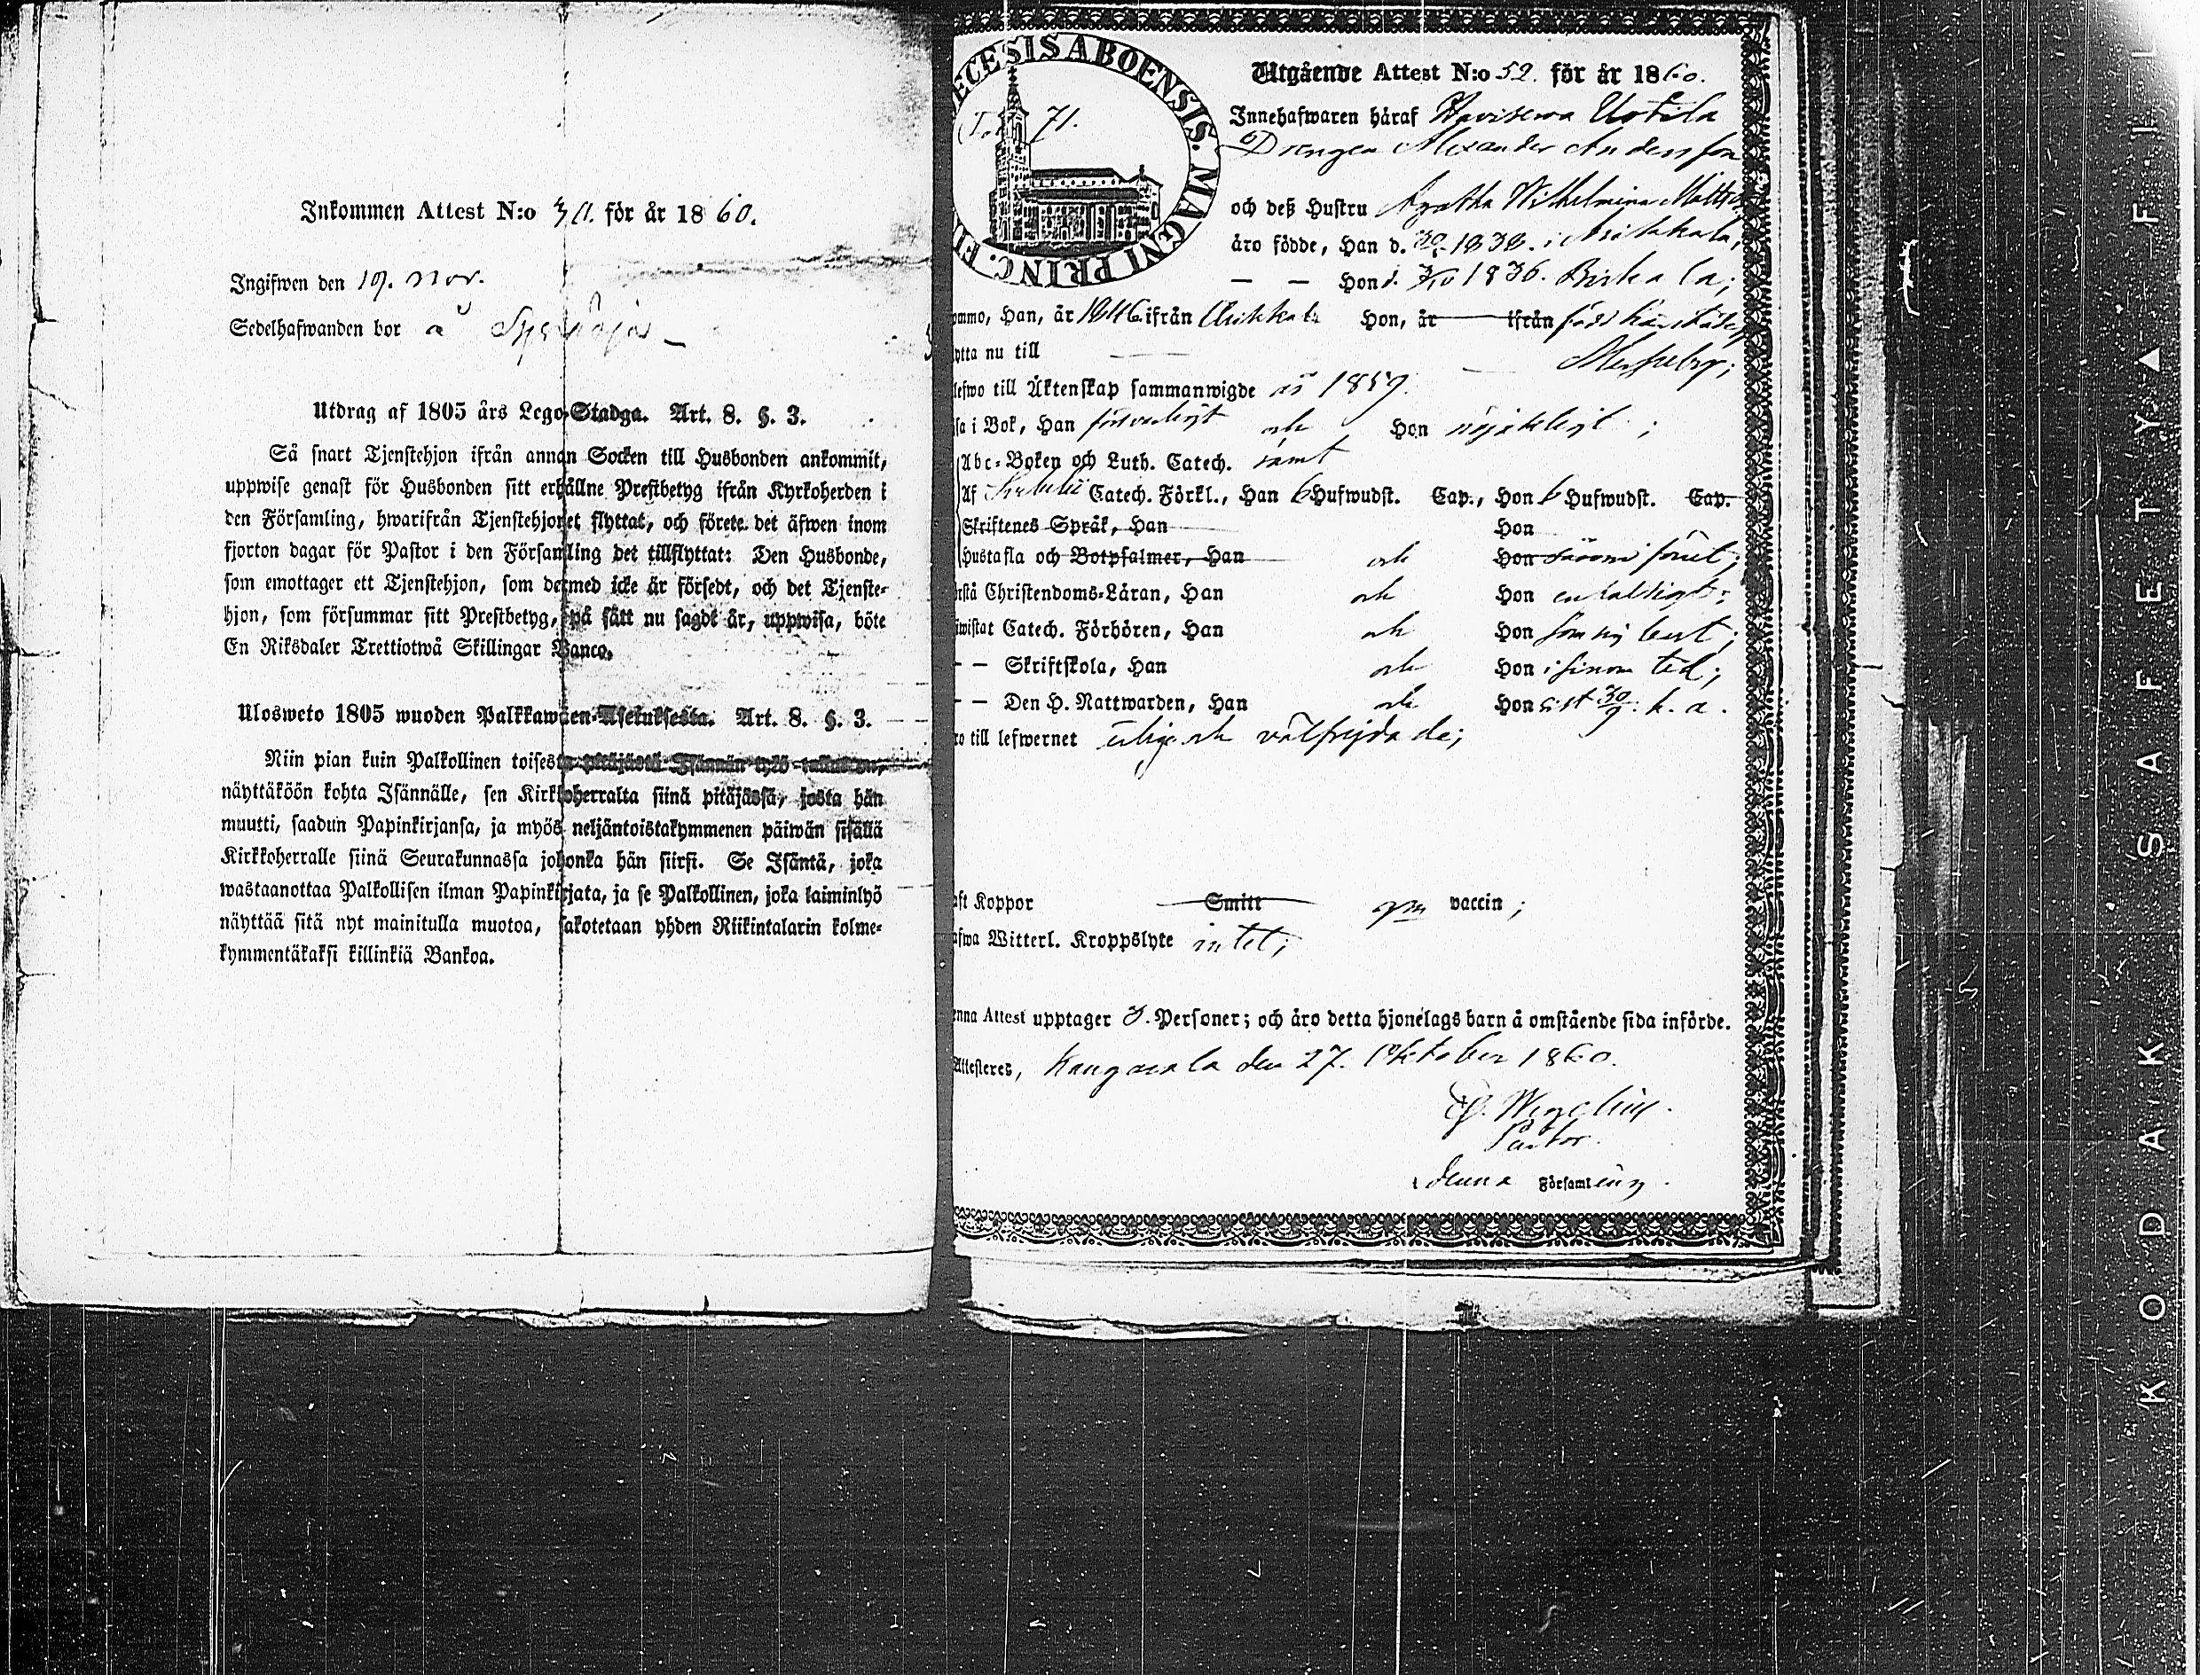 Inkommen Attest N:o 30. för år 1860.
Ingifwen den 19. Nov.
Sedelhafwanden bor å
Utdrag af 1805 års Lego-Stadga. Art. 8. §. 3.
Så snart Tjenstehjon ifrån annan Socken till Husbonden ankommit,
uppwise genast för Husbonden sitt erhållne Prestbetyg ifrån Kyrkoherden i
den Församling, hwarifrån Tjenstehjonet flyttat, och förete det äfwen inom
fjorton dagar för Pastor i den Församling det tillflyttat: Den Husbonde,
som emottager ett Tjenstehjon, som dermed icke är försedt, och det Tjenste-
hjon, som försummar sitt Prestbetyg, på sätt nu sagdt är, uppwisa, böte
En Riksdaler Trettiotwå Skillingar Banco.
Ulosweto 1805 wuoden Palkkawäen-Asetuksesta. Art. 8. §. 3.
Niin pian kuin Palkollinen toisesta pitäjästä Isännän työ tullut on,
näyttäköön kohta Isännälle, sen Kirkkoherralta siinä pitäjässä, josta hän
muutti, saadun Papinkirjansa, ja myös neljäntoistakymmenen päiwän sisällä
Kirkkoherralle siinä Seurakunnassa johonka hän siirsi. Se Isäntä, joka
wastaanottaa Palkollisen ilman Papinkirjata, ja se Palkollinen, joka laiminlyö
näyttää sitä nyt mainitulla muotoa, sakotetaan yhden Riikintalarin kolme-
kymmentäkaksi killinkiä Bankoa.
ECESIS ABOENSIS. MAGNI PRINC. FI
71.
Utgående Attest N:o 52. för år 1860.
Innehafwaren häraf Havisewa Uotila
Drengen Alexander Andersson
och deß Hustru Agatha Wilhelmina Matts
äro födde, Han d. 1838. i Asikkala,
— — Hon d. 1836. Birkala;
ommo, Han, år 1846 ifrån Asikkala Hon, år ifrån född härstädes
ytta nu till Messuby;
lefwo till Äktenskap sammanwigde år 1859.
sa i Bok, Han försvarligt och Hon nöjaktligt;
Abc-Boken och Luth. Catech. samt
Af Catech. Förkl., Han 6 Hufwudst. Cap., Hon 6 Hufwudst. Cap.
Skriftenes Språk, Han Hon
Hustafla och Botpsalmer, Han och Hon
rstå Christendoms-Läran, Han och Hon enfaldigt;
iwistat Catech. Förhören, Han och Hon som sig bort;
— — Skriftskola, Han och Hon i sinom tid;
— — Den H. Nattwarden, Han och Hon sist 30/9 h. a.
ro till lefwernet ärlige och välfrejdade;
aft Koppor Smitt gm vaccin;
afwa Witterl. Kroppslyte intet;
enna Attest upptager 3. Personer; och äro detta hjonelags barn å omstående sida införde.
Attesteres, Kangasala den 27. Oktober 1860.
Wegelius.
Pastor.
i denna Församling.
KODAK SAFETY FIL